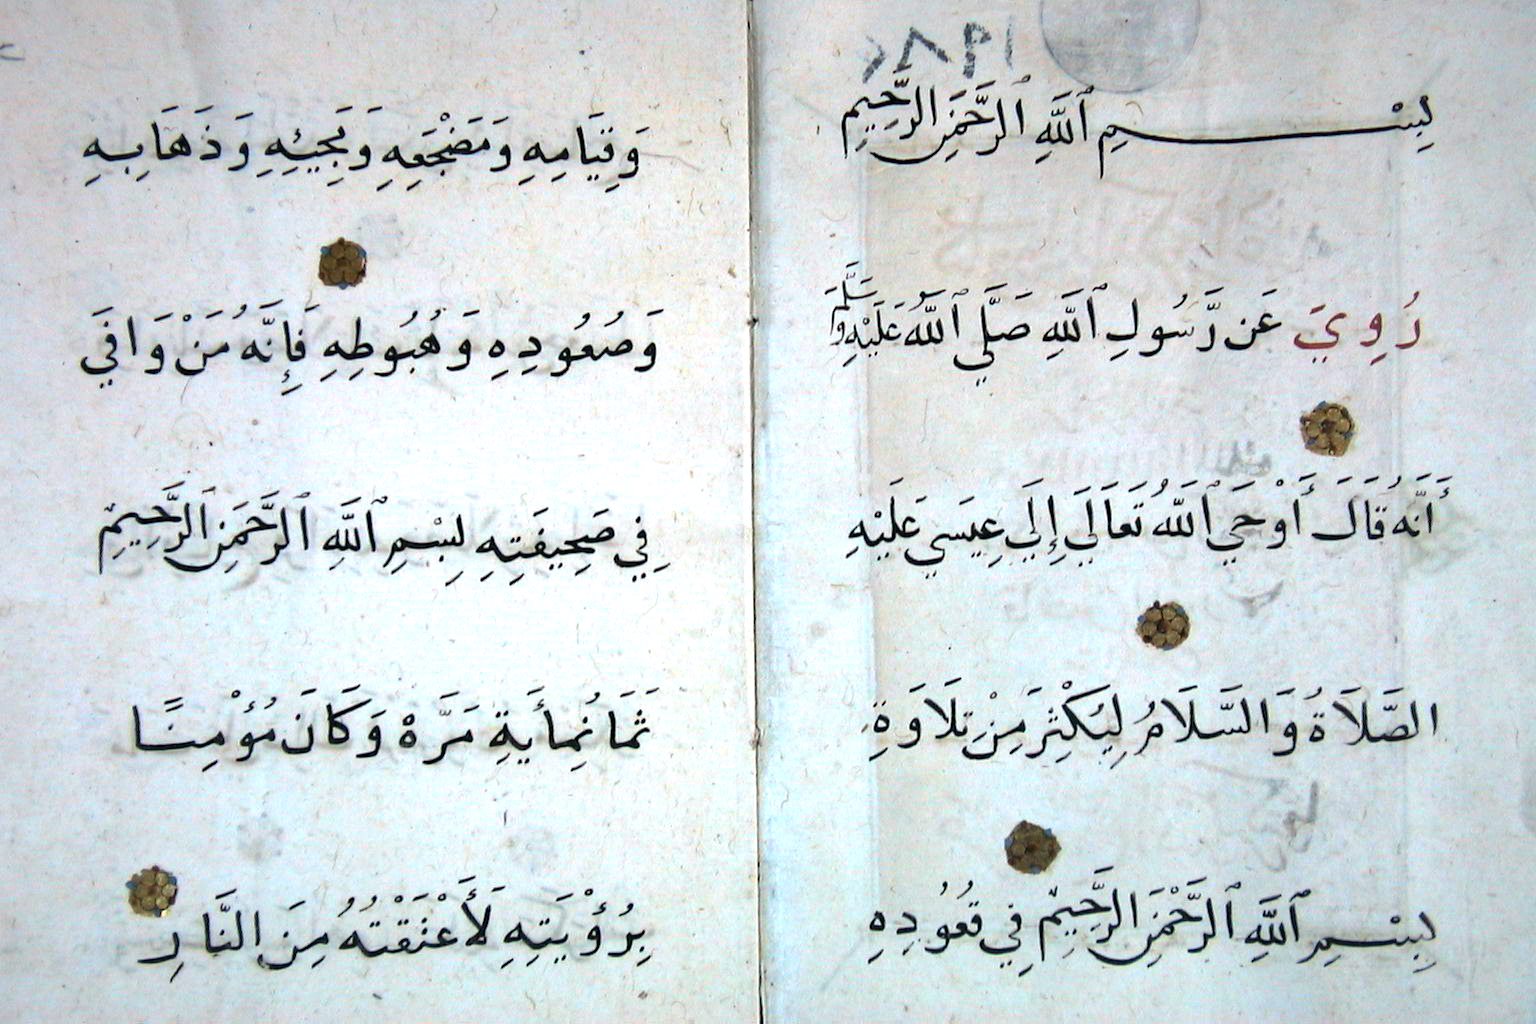 ١٩٨٢
بِسْمِ ٱللَّهِ ٱلرَّحْمَنِ الرَّحِيمِ
رُوِيَ عَن رَّسُولِ ٱللَّهِ صَلَّي ٱللَّهُ عَلَيْهِ وَسَلَّمَ
أَنَّهُ قَالَ أَوْحَي ٱللَّهُ تَعَالَي إِلَي عِيسَي عَلَيْهِ
الصَّلَاةُ وَالسَّلَامُ لِيُكْثِرَ مِنْ تِلَاوَةِ
بِسْمِ ٱللَّهِ ٱلرَّحْمَنِ الرَّحِيمِ فِي قُعُودِهِ
وَقِيَامِهِ وَمَضْجَعِهِ وَمَجِيئِهِ وَذَهَابِهِ
وَصُعُودِهِ وَهُبُوطِهِ فَإِنَّهُ مَنْ وَافَي
فِي صَحِيفَتِهِ بِسْمِ ٱللَّهِ ٱلرَّحْمَنِ ٱلرَّحِيمِ
ثَمَانُمِأَيةِ مَرَّهْ وَكَانَ مُؤْمِنًا
بِرُؤْيَتِهِ لَأَعْتَقْتُهُ مِنَ النَّارِ